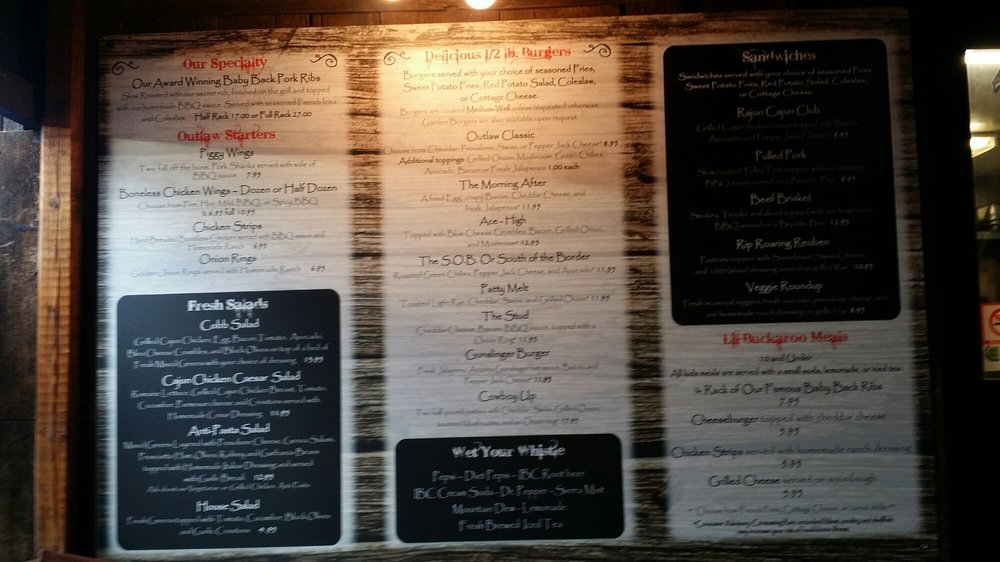 Our Specialty
Our Award Winning Baby Back Pork Ribs
Slow Roasted with our secret rub, finished on the grill and topped
with our homemade BBQ sauce. Served with seasoned French fries
and Coleslaw. Half Rack 17.00 or Full Rack 27.00
Outlaw Starters
Piggy Wings
Two, fall off the bone, Pork Shanks served with side of
BBQ sauce 7.95
Boneless Chicken Wings – Dozen or Half Dozen
Choose from Fire, Hot, Mild, BBQ, or Spicy BBQ
½ 6.95 full 10.95
Chicken Strips
Hand Breaded Boneless Chicken served with BBQ sauce and
Homemade Ranch 6.95
Onion Rings
Golden Onion Rings served with Homemade Ranch 6.95
Fresh Salads
Cobb Salad
Grilled Cajun Chicken, Egg, Bacon, Tomato, Avocado,
Bleu Cheese Crumbles, and Black Olives on top of a bed of
Fresh Mixed Greens with your choice of dressing.
Cajun Chicken Caesar Salad
Romaine Lettuce, Grilled Cajun Chicken Breast, Tomato,
Cucumber, Parmesan cheese and Croutons served with
Homemade Caesar Dressing
Anti-Pasta Salad
Mixed Greens Layered with Provolone Cheese, Genoa Salami,
Prosciutto Ham, Olives, and Garbanzo Beans
topped with Homemade Italian Dressing and served
with Garlic Bread
House Salad
Fresh Greens topped with Tomato, Cucumber, Black Olives
and Garlic Croutons
Delicious 1/2 lb. Burgers
Burgers served with your choice of seasoned Fries,
Sweet Potato Fries, Red Potato Salad, Coleslaw,
or Cottage Cheese.
Burgers are cooked Medium-Well unless requested otherwise.
Garden Burgers are also available upon request.
Outlaw Classic
Choose from Cheddar, Provolone, Swiss, or Pepper Jack Cheese* 8.95
Additional toppings: Grilled Onion, Mushroom, Green Chilies,
Avocado, Bacon or Fresh Jalapenos 1.00 each
The Morning After
A fried Egg, crispy Bacon, Cheddar Cheese, and
fresh Jalapenos* 11.95
Ace - High
Topped with Blue Cheese Crumbles, Bacon, Grilled Onion,
and Mushroom* 12.95
The S.O.B. Or South of the Border
Roasted Green Chilies, Pepper Jack Cheese, and Avocado* 11.95
Patty Melt
Toasted Light Rye, Cheddar, Swiss, and Grilled Onion* 11.95
The Stud
Cheddar Cheese, Bacon, BBQ sauce, topped with a
Onion Ring* 11.95
Gunslinger Burger
Fresh Jalapeno, Arizona Gunslinger hot sauce, Bacon, and
Pepper Jack Cheese* 11.95
Cowboy Up
Two half pound patties with Cheddar, Swiss, Grilled Onion,
Wet Your Whistle
Pepsi - Diet Pepsi - IBC Root beer
IBC Cream Soda - Dr. Pepper - Sierra Mist
Mountain Dew - Lemonade
Fresh Brewed Iced Tea
Sandwiches
Sandwiches served with your choice of seasoned Fries,
Sweet Potato Fries, Red Potato Salad, Coleslaw,
or Cottage Cheese.
Rajun Cajun Club
Grilled Cajun chicken breast topped with Bacon,
Avocado and Pepper Jack Cheese 9.95
Pulled Pork
Slow cooked, Pulled Pork topped with our
BBQ sauce served on a Brioche Bun
Beef Brisket
Smokey, Tender and sliced topped with our homemade
BBQ served on a Brioche Bun
Rip Roaring Reuben
Pastrami topped with Sauerkraut, Swiss Cheese
and 1000 Island dressing served on grilled Rye 10.95
Veggie Roundup
our homemade ranch dressing, on grilled rye 8.95
Lil Buckaroo Meals
10 and Under
All kids meals are served with a small soda, lemonade, or iced tea.
¼ Rack of Our Famous Baby Back Ribs
7.95
Cheeseburger topped with cheddar cheese
5.95
Chicken Strips served with homemade ranch dressing
5.95
Grilled Cheese served on sourdough
5.95